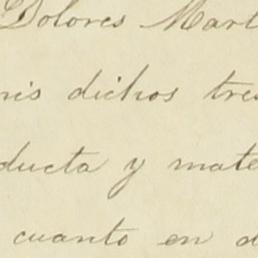 Dolores Mart
nis dichos tres
ducta y mate
cuanto en d